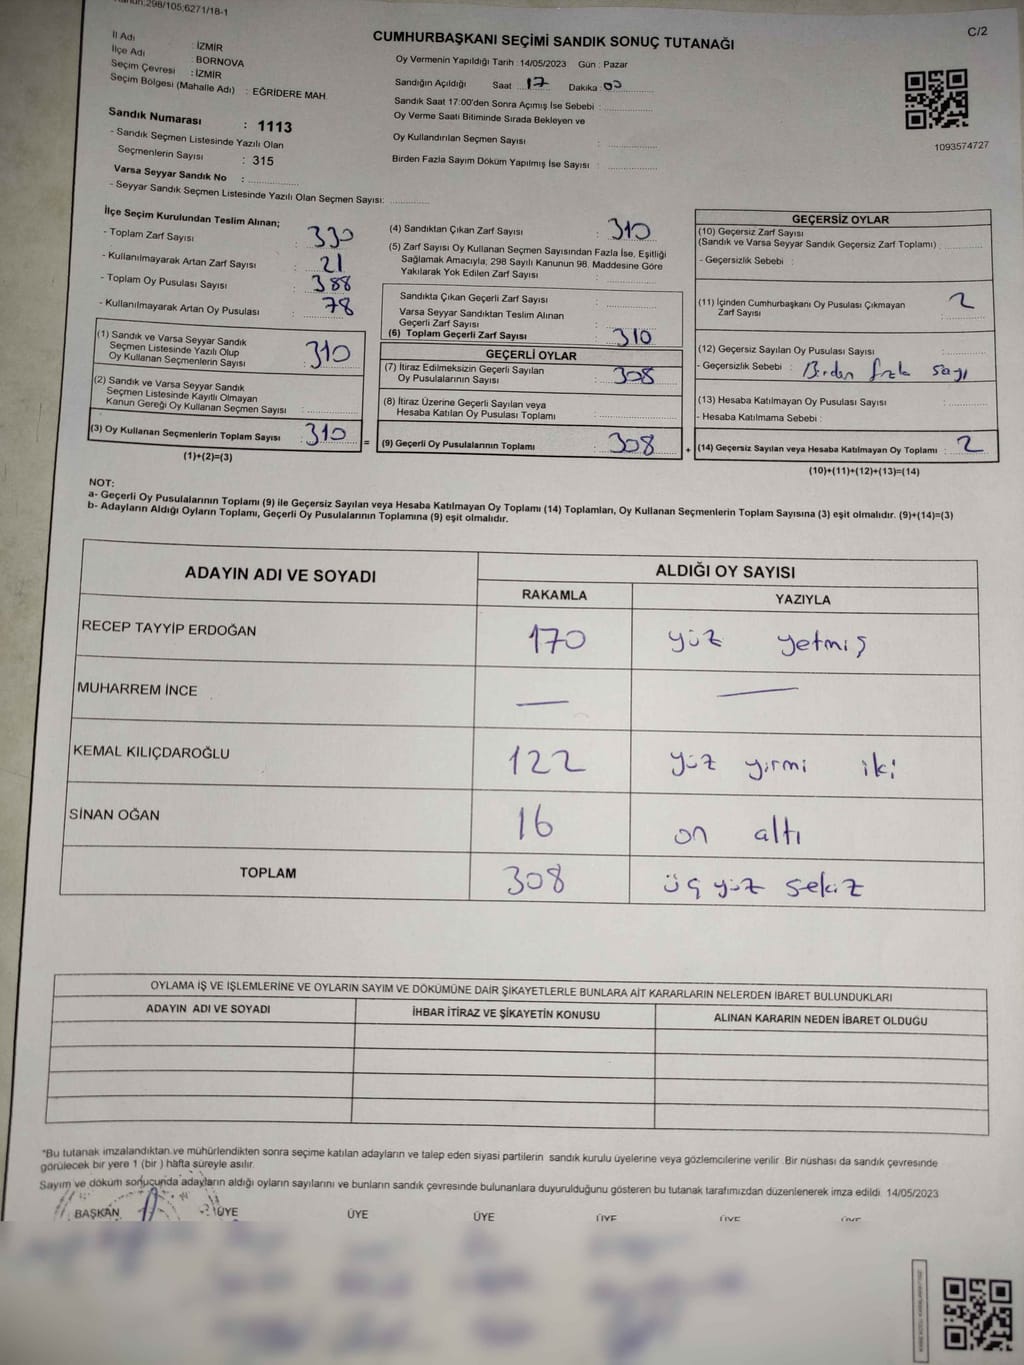 Kanun:298/105;6271/18-1
C/2
CUMHURBAŞKANI SEÇİMİ SANDIK SONUÇ TUTANAĞI
İl Adı : İZMİR
İlçe Adı : BORNOVA
Seçim Çevresi : İZMİR
Seçim Bölgesi (Mahalle Adı) : EĞRİDERE MAH.
Oy Vermenin Yapıldığı Tarih : 14/05/2023 Gün : Pazar
Sandığın Açıldığı Saat : 17 Dakika : 00
Sandık Saat 17:00'den Sonra Açımış İse Sebebi :
Oy Verme Saati Bitiminde Sırada Bekleyen ve
Oy Kullandırılan Seçmen Sayısı :
Birden Fazla Sayım Döküm Yapılmış İse Sayısı :
1093574727
Sandık Numarası : 1113
- Sandık Seçmen Listesinde Yazılı Olan
Seçmenlerin Sayısı : 315
Varsa Seyyar Sandık No :
- Seyyar Sandık Seçmen Listesinde Yazılı Olan Seçmen Sayısı:
İlçe Seçim Kurulundan Teslim Alınan;
- Toplam Zarf Sayısı : 330
- Kullanılmayarak Artan Zarf Sayısı : 21
- Toplam Oy Pusulası Sayısı : 388
- Kullanılmayarak Artan Oy Pusulası : 78
(1) Sandık ve Varsa Seyyar Sandık
Seçmen Listesinde Yazılı Olup
Oy Kullanan Seçmenlerin Sayısı : 310
(2) Sandık ve Varsa Seyyar Sandık
Seçmen Listesinde Kayıtlı Olmayan
Kanun Gereği Oy Kullanan Seçmen Sayısı :
(3) Oy Kullanan Seçmenlerin Toplam Sayısı : 310 =
(1)+(2)=(3)
(4) Sandıktan Çıkan Zarf Sayısı : 310
(5) Zarf Sayısı Oy Kullanan Seçmen Sayısından Fazla İse, Eşitliği
Sağlamak Amacıyla; 298 Sayılı Kanunun 98. Maddesine Göre
Yakılarak Yok Edilen Zarf Sayısı :
Sandıkta Çıkan Geçerli Zarf Sayısı :
Varsa Seyyar Sandıktan Teslim Alınan
Geçerli Zarf Sayısı :
(6) Toplam Geçerli Zarf Sayısı : 310
GEÇERLİ OYLAR
(7) İtiraz Edilmeksizin Geçerli Sayılan
Oy Pusulalarının Sayısı : 308
(8) İtiraz Üzerine Geçerli Sayılan veya
Hesaba Katılan Oy Pusulası Toplamı :
(9) Geçerli Oy Pusulalarının Toplamı : 308 +
GEÇERSİZ OYLAR
(10) Geçersiz Zarf Sayısı
(Sandık ve Varsa Seyyar Sandık Geçersiz Zarf Toplamı) :
- Geçersizlik Sebebi :
(11) İçinden Cumhurbaşkanı Oy Pusulası Çıkmayan
Zarf Sayısı : 2
(12) Geçersiz Sayılan Oy Pusulası Sayısı :
- Geçersizlik Sebebi : Birden fazla sayı
(13) Hesaba Katılmayan Oy Pusulası Sayısı :
- Hesaba Katılmama Sebebi :
(14) Geçersiz Sayılan veya Hesaba Katılmayan Oy Toplamı : 2
(10)+(11)+(12)+(13)=(14)
NOT:
a- Geçerli Oy Pusulalarının Toplamı (9) ile Geçersiz Sayılan veya Hesaba Katılmayan Oy Toplamı (14) Toplamları, Oy Kullanan Seçmenlerin Toplam Sayısına (3) eşit olmalıdır. (9)+(14)=(3)
b- Adayların Aldığı Oyların Toplamı, Geçerli Oy Pusulalarının Toplamına (9) eşit olmalıdır.
ADAYIN ADI VE SOYADI ALDIĞI OY SAYISI
RAKAMLA YAZIYLA
RECEP TAYYİP ERDOĞAN 170 yüz yetmiş
MUHARREM İNCE — —
KEMAL KILIÇDAROĞLU 122 yüz yirmi iki
SİNAN OĞAN 16 on altı
TOPLAM 308 üç yüz sekiz
OYLAMA İŞ VE İŞLEMLERİNE VE OYLARIN SAYIM VE DÖKÜMÜNE DAİR ŞİKAYETLERLE BUNLARA AİT KARARLARIN NELERDEN İBARET BULUNDUKLARI
ADAYIN ADI VE SOYADI İHBAR İTİRAZ VE ŞİKAYETİN KONUSU ALINAN KARARIN NEDEN İBARET OLDUĞU
*Bu tutanak imzalandıktan ve mühürlendikten sonra seçime katılan adayların ve talep eden siyasi partilerin sandık kurulu üyelerine veya gözlemcilerine verilir. Bir nüshası da sandık çevresinde
görülecek bir yere 1 (bir ) hafta süreyle asılır.
Sayım ve döküm sonucunda adayların aldığı oyların sayılarını ve bunların sandık çevresinde bulunanlara duyurulduğunu gösteren bu tutanak tarafımızdan düzenlenerek imza edildi. 14/05/2023
BAŞKAN ÜYE ÜYE ÜYE ÜYE ÜYE ÜYE